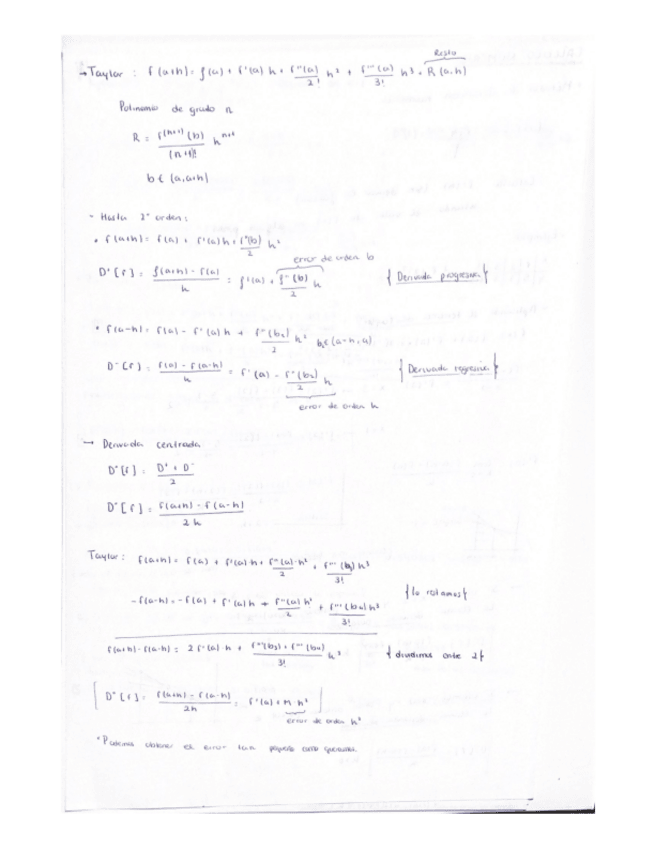 Resto
→Taylor : f(a+h) = f(a) + f'(a) h + f''(a)/2! h² + f'''(a)/3! h³ + R(a,h)
Polinomio de grado n
R = f^(n+1) (b)/(n+1)! h^(n+1)
b ∈ (a, a+h)
- Hasta 2º orden:
• f(a+h) = f(a) + f'(a) h + f''(b)/2 h²
error de orden h
D⁺[f] = f(a+h) - f(a)/h = f'(a) + f''(b)/2 h { Derivada progresiva }
• f(a-h) = f(a) - f'(a) h + f''(b₂)/2 h² b₂∈(a-h, a)
D⁻[f] = f(a) - f(a-h)/h = f'(a) - f''(b₂)/2 h { Derivada regresiva }
error de orden h
→ Derivada centrada
D°[f] = D⁺ + D⁻/2
D°[f] = f(a+h) - f(a-h)/2h
Taylor: f(a+h) = f(a) + f'(a) h + f''(a)·h²/2 + f'''(b₃) h³/3!
-f(a-h) = -f(a) + f'(a) h + f''(a) h²/2 + f'''(b₄) h³/3! { lo restamos }
f(a+h) - f(a-h) = 2 f'(a)·h + f'''(b₃) + f'''(b₄)/3! h³ { dividimos entre 2 }
[ D°[f] = f(a+h) - f(a-h)/2h = f'(a) + M·h² ]
error de orden h²
*Podemos obtener el error tan pequeño como queramos.